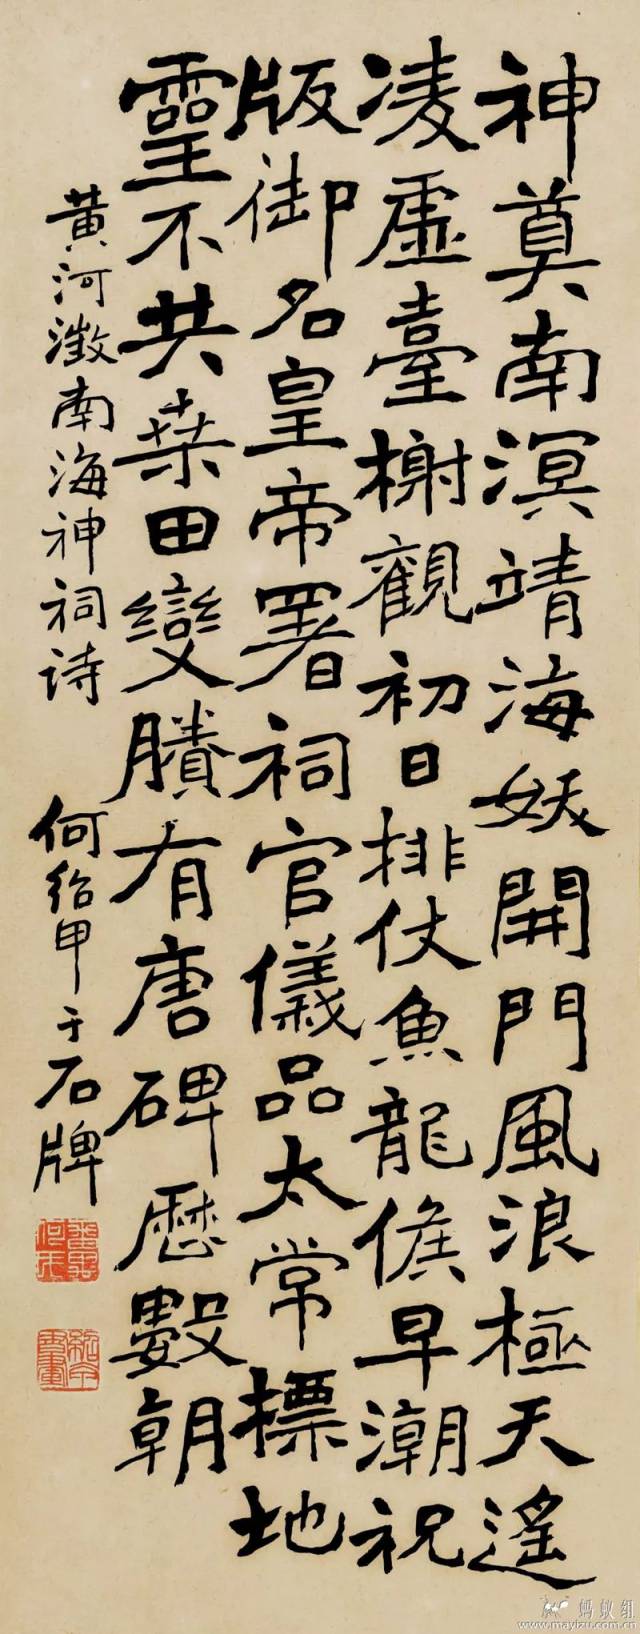 神奠南溟靖海妖開門風浪極天遙
凌虛臺榭觀初日排仗魚龍候早潮祝
版御名皇帝署祠官儀品太常標地
靈不共桑田變賸有唐碑歷數朝
黄河澂南海神祠诗
何绍甲于石牌
蚂蚁组
www.mayizu.com.cn